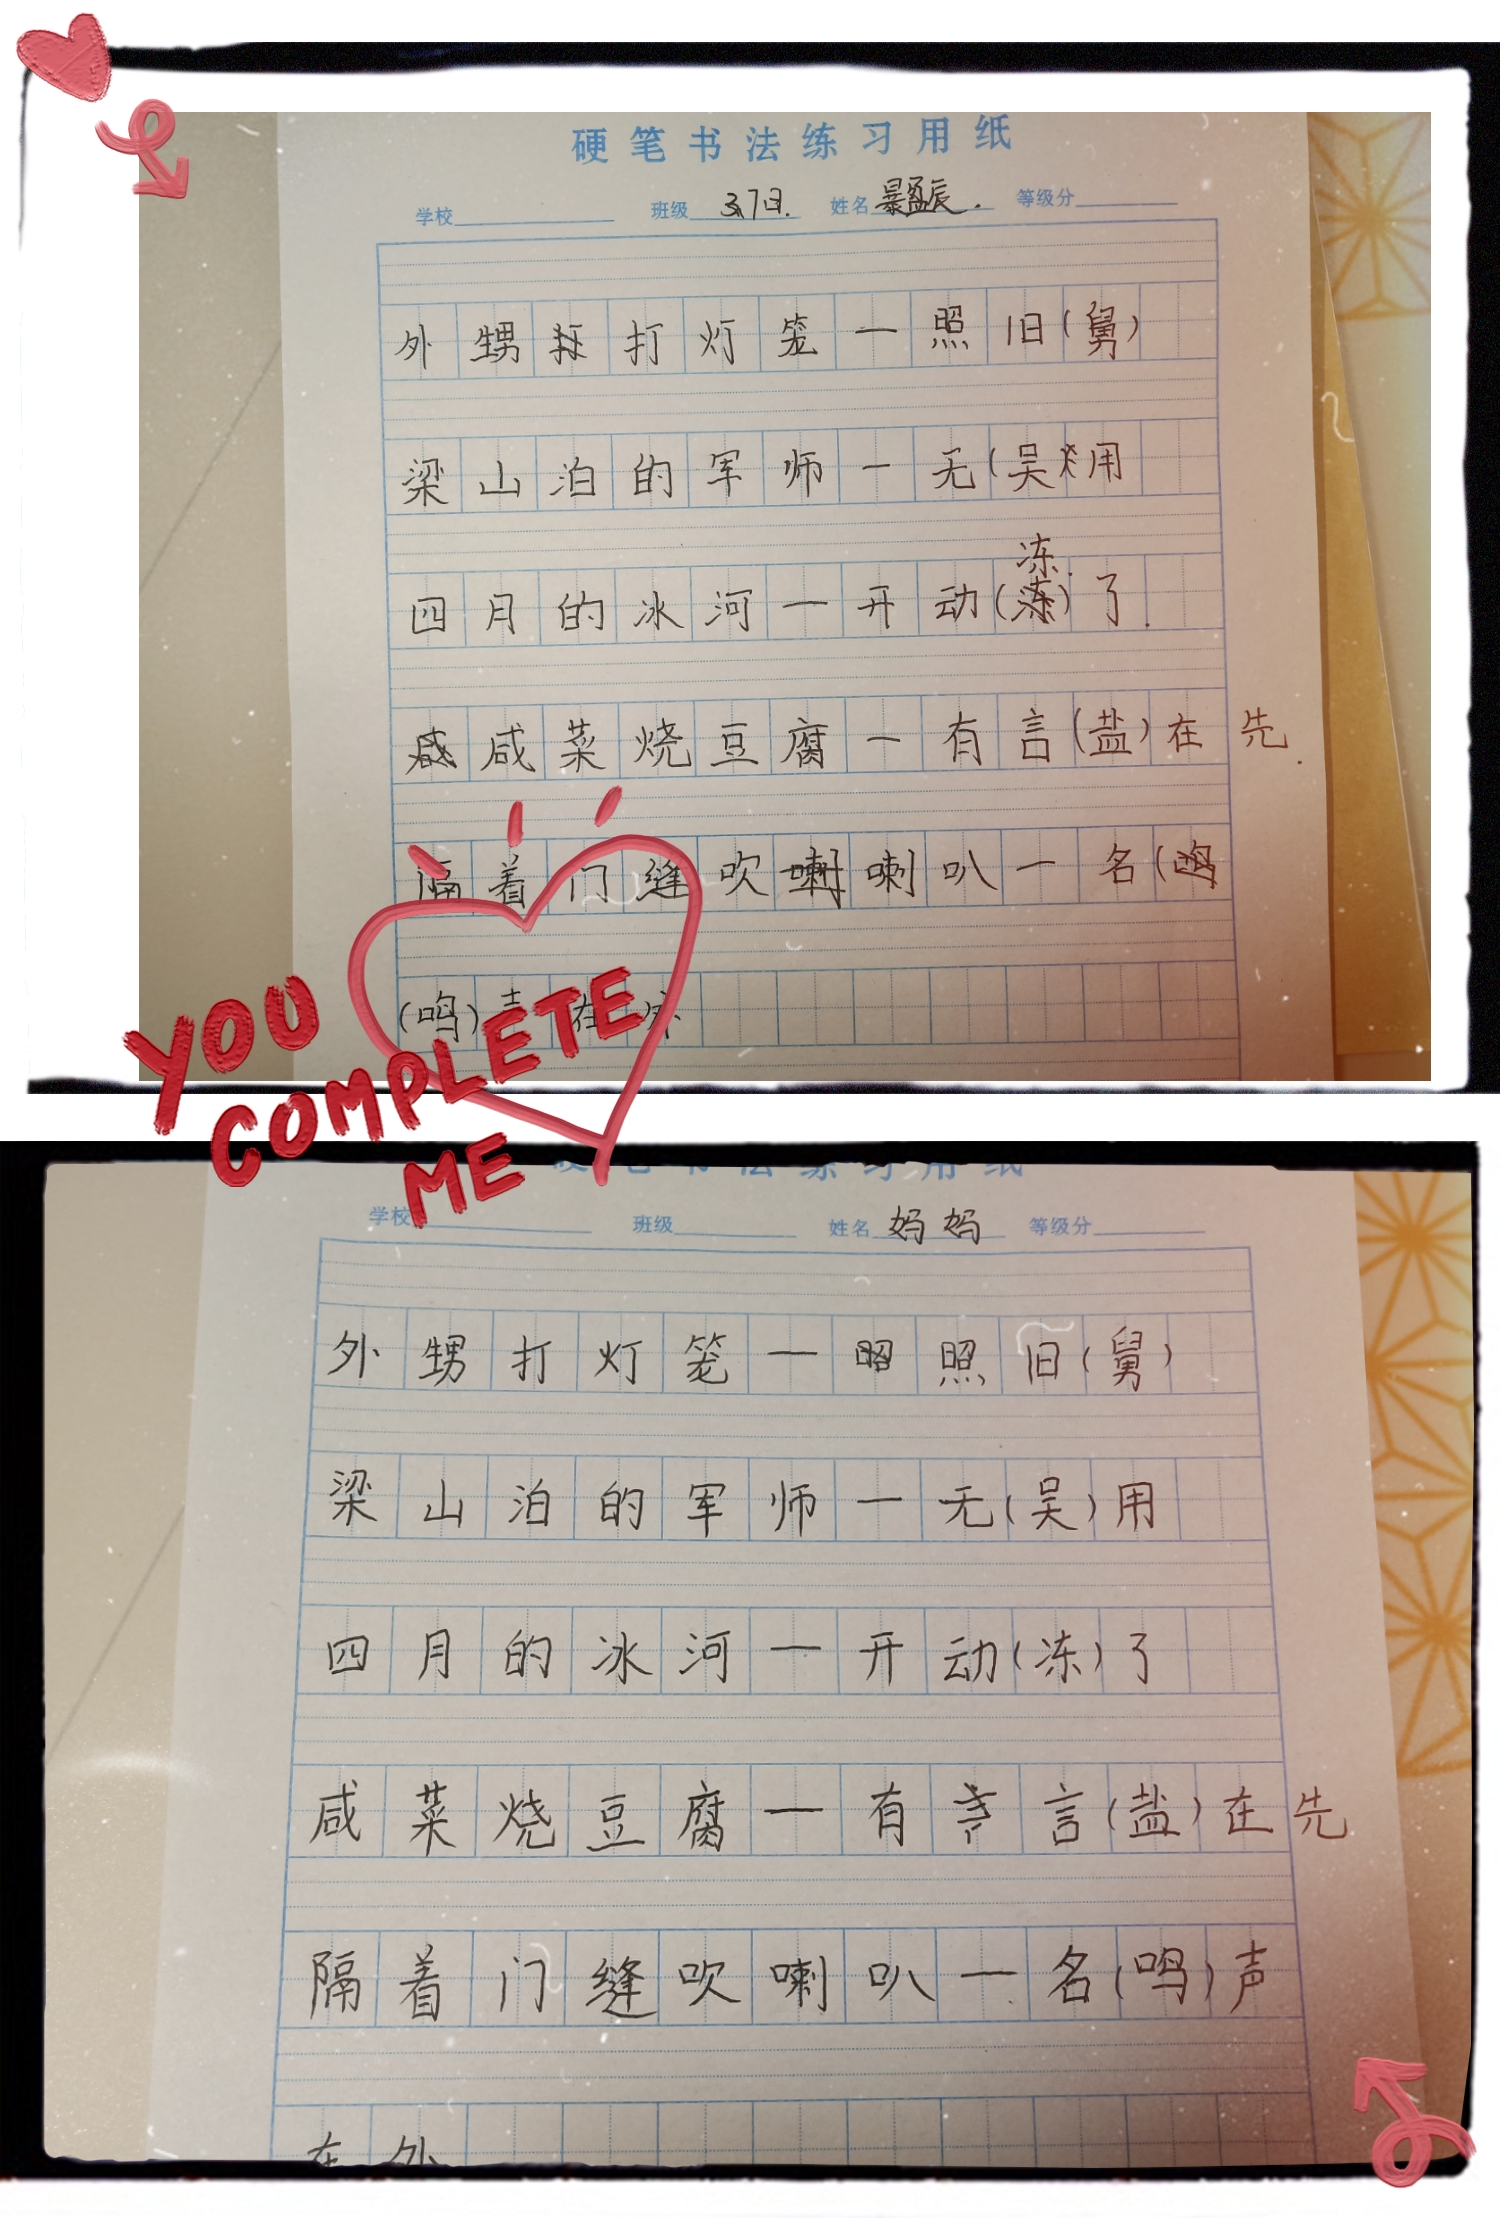 硬笔书法练习用纸
学校 班级 3.7日. 姓名 景盈辰. 等级分
外甥打灯笼一照旧(舅)
梁山泊的军师一无(吴)用
冻
四月的冰河一开动()了.
咸菜烧豆腐一有言(盐)在先.
隔着门缝吹喇叭一名(
(鸣)声在外
YOU
COMPLETE
ME
硬笔书法练习用纸
学校 班级 姓名 妈妈 等级分
外甥打灯笼一照旧(舅)
梁山泊的军师一无(吴)用
四月的冰河一开动(冻)了
咸菜烧豆腐一有言(盐)在先.
隔着门缝吹喇叭一名(鸣)声
在外